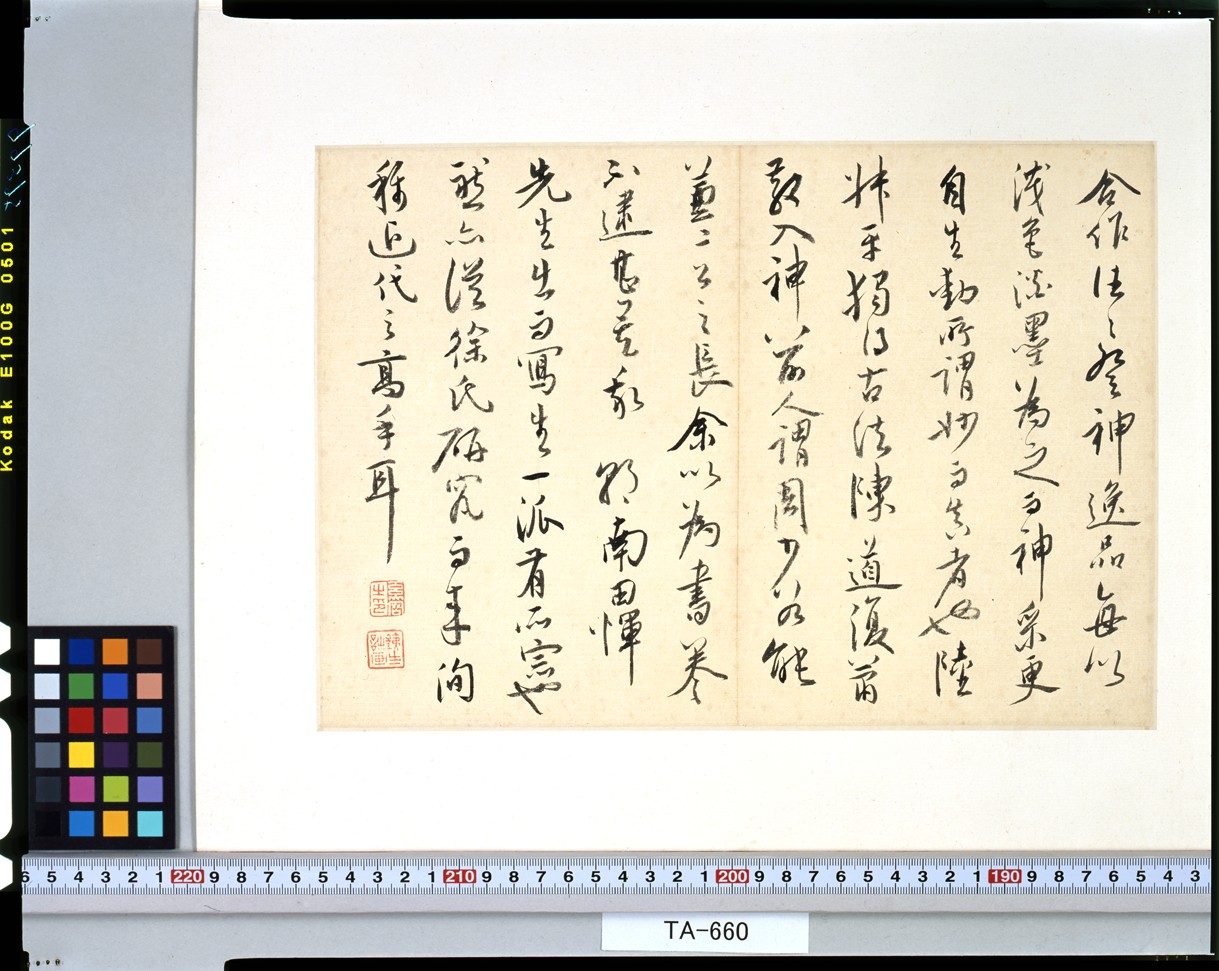 合作往々登神逸品每以
淺色淡墨為之而神采更
自生動所謂妙而真者也陸
叔平獨得古法陳道復蕭
散入神前人謂周少谷能
兼二公之長余以為書卷
不逮甚矣我 朝南田惲
先生出而寫生一派有所宗也
然亦從徐氏研究而來洵
稱近代之高手耳
Kodak E100G 0501
6 5 4 3 2 1 220 9 8 7 6 5 4 3 2 1 210 9 8 7 6 5 4 3 2 1 200 9 8 7 6 5 4 3 2 1 190 9 8 7 6 5 4 3
TA-660